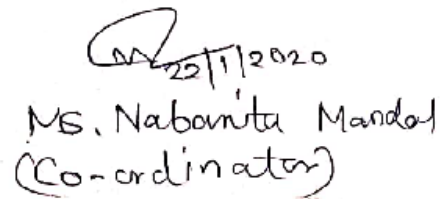 22/1/2020
Ms. Nabanita Mandal
(Co-ordinator)